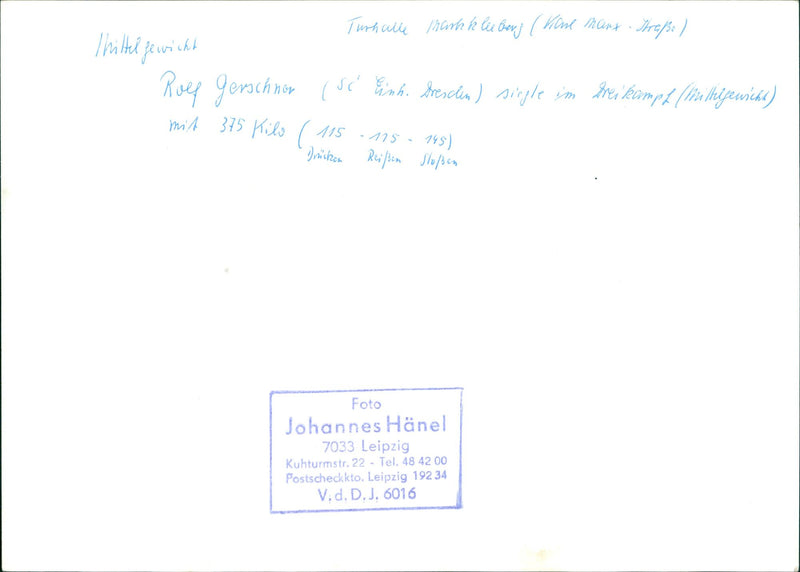 Turhalle Markkleeberg (Karl Marx-Straße)
Mittelgewicht
Rolf Gerschner (SC Einh. Dresden) siegte im Dreikampf (Mittelgewicht)
mit 375 Kilo (115 - 115 - 145)
Drücken Reißen Stoßen
Foto
Johannes Hänel
7033 Leipzig
Kuhturmstr. 22 - Tel. 48 42 00
Postscheckkto. Leipzig 192 34
V.d.D.J. 6016